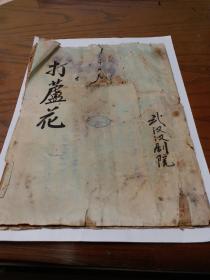 打蘆花
武汉汉剧院